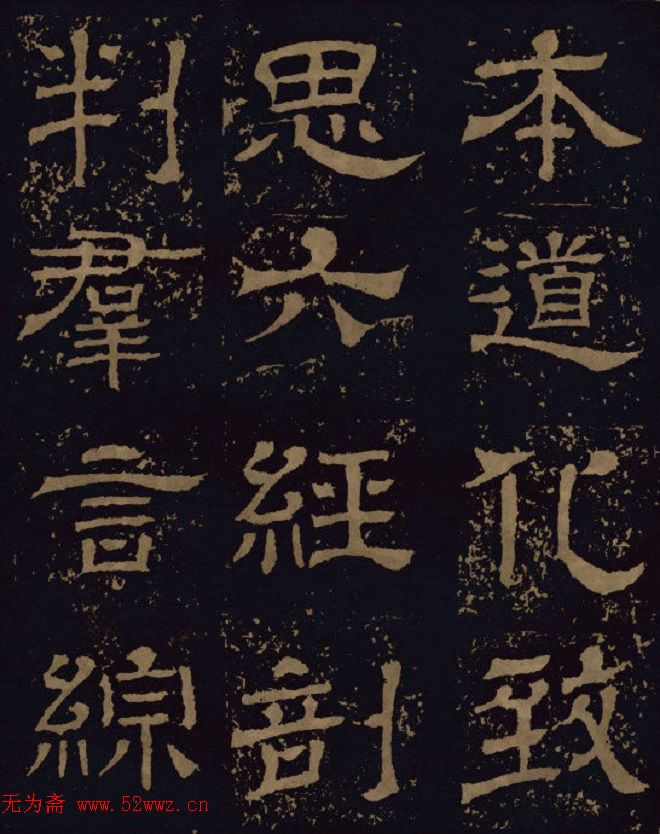 本道化致
思六經剖
判羣言綜
无为斋 www.52wwz.cn